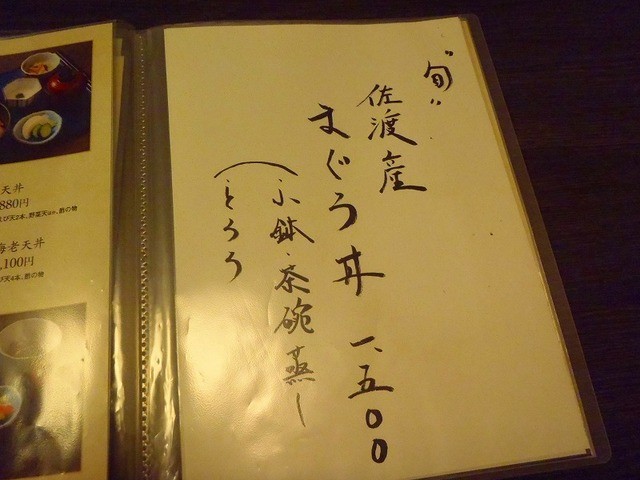 "旬"
佐渡産
まぐろ丼 一、五〇〇
(小鉢・茶碗蒸し
とろろ
天丼
880円
海老天丼
,100円
天4本、酢の物